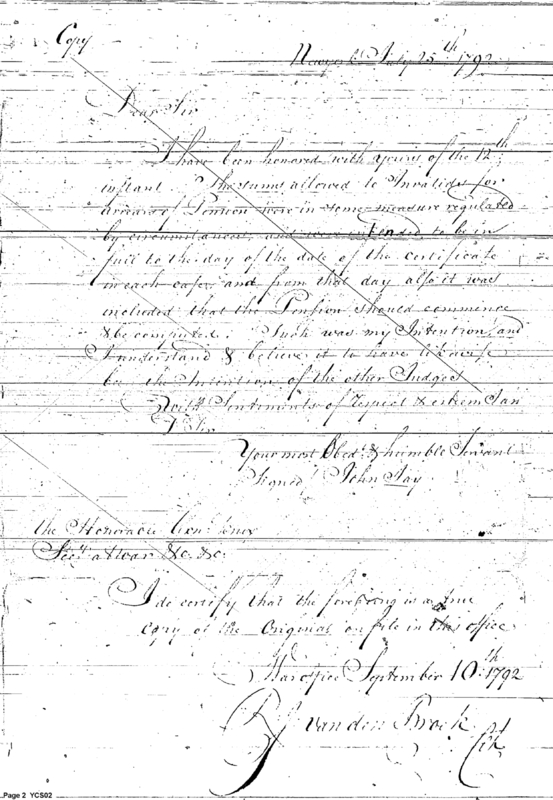 Copy
New york July 25th 1792
Dear Sir
I have been honored with yours of the 12th
instant The sums allowed to Invalides for
arrears of Pension were in some measure regulated
by circumstances, and were intended to be in
full to the day of the date of the certificate
in each case, and from that day also it was
included that the Pension should commence
& be computed. Such was my Intention, and
I understand & believe it to have likewise
been the Intention of the other Judges
With Sentiments of respect & esteem I am
Sir
Your most Obedt. & humble Servant
Signed John Jay
the Honorable Genl. Knox
Secy. at war &c. &c.
I do certify that the foregoing is a true
Copy of the Original on file in this office
War office September 10th 1792
J. Vanden Brock
Clk
Page 2 YCS02